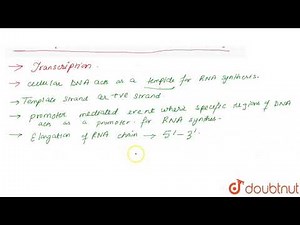 → Transcription.
→ cellular DNA act as a template for RNA synthesis.
→ Template strand or +ve strand
→ promoter mediated event where specific region of DNA
act as a promoter for RNA synthesis.
→ Elongation of RNA chain → 5'-3'.
doubtnut